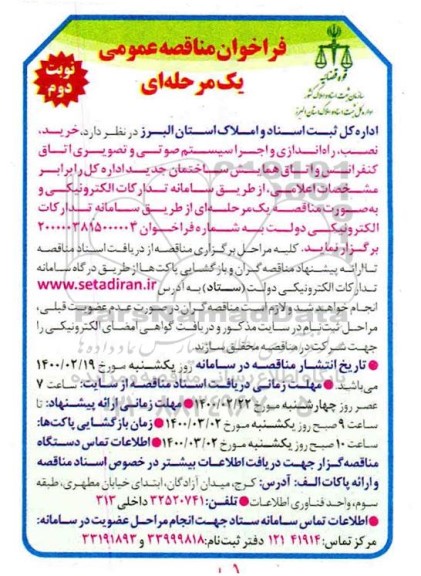 فراخوان مناقصه عمومی
یک مرحله‌ای
نوبت
دوم
قوه قضائیه
سازمان ثبت اسناد و املاک کشور
اداره کل ثبت اسناد و املاک استان البرز
اداره کل ثبت اسناد و املاک استان البرز در نظر دارد، خرید،
نصب، راه‌اندازی و اجرا سیستم صوتی و تصویری اتاق
کنفرانس و اتاق همایش ساختمان جدید اداره کل را برابر
مشخصات اعلامی، از طریق سامانه تدارکات الکترونیکی و
به‌صورت مناقصه یک مرحله‌ای از طریق سامانه تدارکات
الکترونیکی دولت به شماره فراخوان ۲۰۰۰۰۰۳۸۱۵۰۰۰۰۰۴
برگزار نماید. کلیه مراحل برگزاری مناقصه از دریافت اسناد مناقصه
تا ارائه پیشنهاد مناقصه‌گران و بازگشایی پاکت‌ها از طریق درگاه سامانه
تدارکات الکترونیکی دولت (ستاد) به آدرس www.setadiran.ir
انجام خواهد شد و لازم است مناقصه‌گران در صورت عدم عضویت قبلی،
مراحل ثبت‌نام در سایت مذکور و دریافت گواهی امضای الکترونیکی را
جهت شرکت در مناقصه محقق سازند.
● تاریخ انتشار مناقصه در سامانه روز یکشنبه مورخ ۱۴۰۰/۰۲/۱۹
می‌باشد. ● مهلت زمانی دریافت اسناد مناقصه از سایت: ساعت ۷
عصر روز چهارشنبه مورخ ۱۴۰۰/۰۲/۲۲ ● مهلت زمانی ارائه پیشنهاد: تا
ساعت ۹ صبح روز یکشنبه مورخ ۱۴۰۰/۰۳/۰۲ ● زمان بازگشایی پاکت‌ها:
ساعت ۱۰ صبح روز یکشنبه مورخ ۱۴۰۰/۰۳/۰۲ ● اطلاعات تماس دستگاه
مناقصه‌گزار جهت دریافت اطلاعات بیشتر در خصوص اسناد مناقصه
و ارائه پاکات الف: آدرس: کرج، میدان آزادگان، ابتدای خیابان مطهری، طبقه
سوم، واحد فناوری اطلاعات ● تلفن: ۳۲۵۲۰۷۴۱ داخلی ۳۱۳
● اطلاعات تماس سامانه ستاد جهت انجام مراحل عضویت در سامانه:
مرکز تماس: ۴۱۹۱۴ ۱۲۱ دفتر ثبت‌نام: ۳۳۹۹۹۸۱۸ و ۳۳۱۹۱۸۹۳